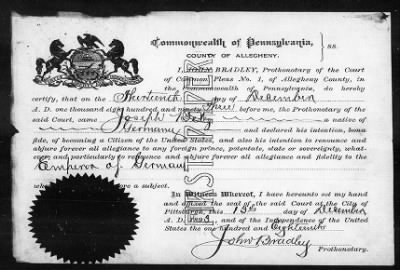 Commonwealth of Pennsylvania,
COUNTY OF ALLEGHENY. } SS.
I, JOHN BRADLEY, Prothonotary of the Court
of Common Pleas No. 1, of Allegheny County, in
the Commonwealth of Pennsylvania, do hereby
certify, that on the Thirteenth day of December
A. D. one thousand eight hundred and ninety three before me, the Prothonotary of the
said Court, came Joseph a native of
Germany and declared his intention, bona
fide, of becoming a Citizen of the United States, and also his intention to renounce and
abjure forever all allegiance to any foreign prince, potentate, state or sovereignty, what-
ever, and particularly to renounce and abjure forever all allegiance and fidelity to the
Emperor of Germany
before a subject.
In Witness Whereof, I have hereunto set my hand
and affixed the seal of the said Court at the City of
Pittsburgh, this 13th day of December
A. D. and of the Independence of the United
States the one hundred and Eighteenth
John Bradley
Prothonotary.
FIRST PAPER